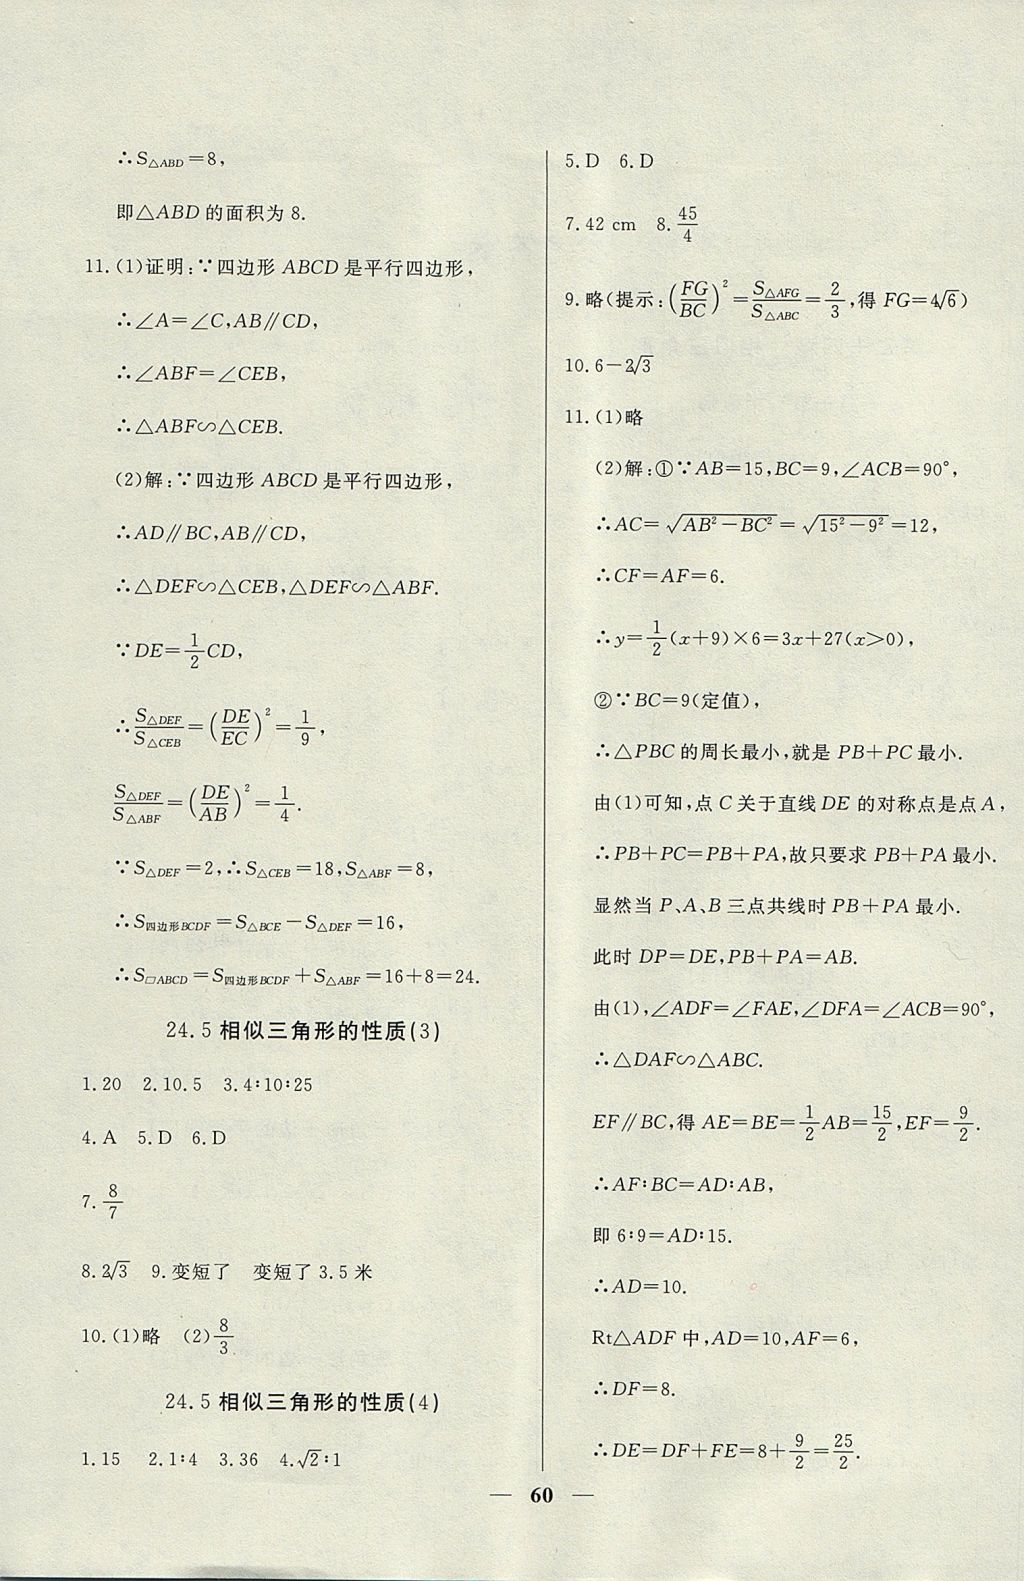 ∴S△ABD=8,
即△ABD的面积为8.
11.(1)证明:∵四边形ABCD是平行四边形,
∴∠A=∠C,AB∥CD,
∴∠ABF=∠CEB,
∴△ABF∽△CEB.
(2)解:∵四边形ABCD是平行四边形,
∴AD∥BC,AB∥CD,
∴△DEF∽△CEB,△DEF∽△ABF.
∵DE=1/2CD,
∴S△DEF/S△CEB=(DE/EC)²=1/9,
S△DEF/S△ABF=(DE/AB)²=1/4.
∵S△DEF=2,∴S△CEB=18,S△ABF=8,
∴S四边形BCDF=S△BCE-S△DEF=16,
∴S▱ABCD=S四边形BCDF+S△ABF=16+8=24.
24.5 相似三角形的性质(3)
1.20 2.10.5 3.4∶10∶25
4.A 5.D 6.D
7.8/7
8.2√3 9.变短了 变短了3.5米
10.(1)略 (2)8/3
24.5 相似三角形的性质(4)
1.15 2.1∶4 3.36 4.√2∶1
5.D 6.D
7.42 cm 8.45/4
9.略(提示:(FG/BC)²=S△AFG/S△ABC=2/3,得FG=4√6)
10.6-2√3
11.(1)略
(2)解:①∵AB=15,BC=9,∠ACB=90°,
∴AC=√(AB²-BC²)=√(15²-9²)=12,
∴CF=AF=6.
∴y=1/2(x+9)×6=3x+27(x>0),
②∵BC=9(定值),
∴△PBC的周长最小,就是PB+PC最小.
由(1)可知,点C关于直线DE的对称点是点A,
∴PB+PC=PB+PA,故只要求PB+PA最小.
显然当P、A、B三点共线时PB+PA最小.
此时DP=DE,PB+PA=AB.
由(1),∠ADF=∠FAE,∠DFA=∠ACB=90°,
∴△DAF∽△ABC.
EF∥BC,得AE=BE=1/2AB=15/2,EF=9/2.
∴AF∶BC=AD∶AB,
即6∶9=AD∶15.
∴AD=10.
Rt△ADF中,AD=10,AF=6,
∴DF=8.
∴DE=DF+FE=8+9/2=25/2.
— 60 —